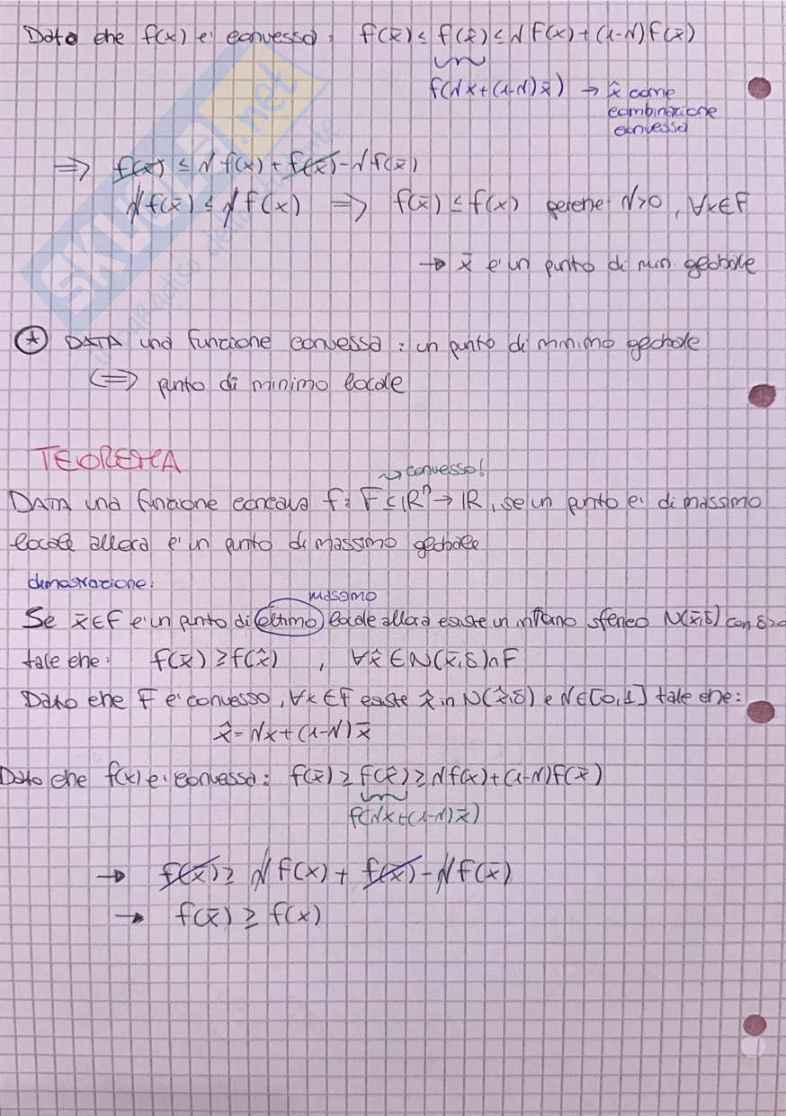 Dato che f(x) e' convessa: f(x̄) ≤ f(x̂) ≤ λf(x) + (1-λ)f(x̄)
f(λx + (1-λ)x̄) → x̂ come
combinazione
convessa
⇒ f(x̄) ≤ λf(x) + f(x̄) - λf(x̄)
λf(x̄) ≤ λf(x) ⇒ f(x̄) ≤ f(x) perche' λ>0, ∀x∈F
→ x̄ e' un punto di min globale
* DATA una funzione convessa: un punto di minimo globale
⇔ punto di minimo locale
TEOREMA
→ convesso!
DATA una funzione concava f: F⊆ℝⁿ → ℝ, se un punto e' di massimo
locale allora e' un punto di massimo globale
dimostrazione:
massimo
Se x̄∈F e' un punto di ottimo locale allora esiste un intorno sferico N(x̄,δ) con δ>0
tale che: f(x̄) ≥ f(x̂), ∀x̂∈N(x̄,δ)∩F
Dato che F e' convesso, ∀x∈F esiste x̂ in N(x̄,δ) e λ∈[0,1] tale che:
x̂ = λx + (1-λ)x̄
Dato che f(x) e' convessa: f(x̄) ≥ f(x̂) ≥ λf(x) + (1-λ)f(x̄)
f(λx + (1-λ)x̄)
→ f(x̄) ≥ λf(x) + f(x̄) - λf(x̄)
→ f(x̄) ≥ f(x)
SKUOLA.net